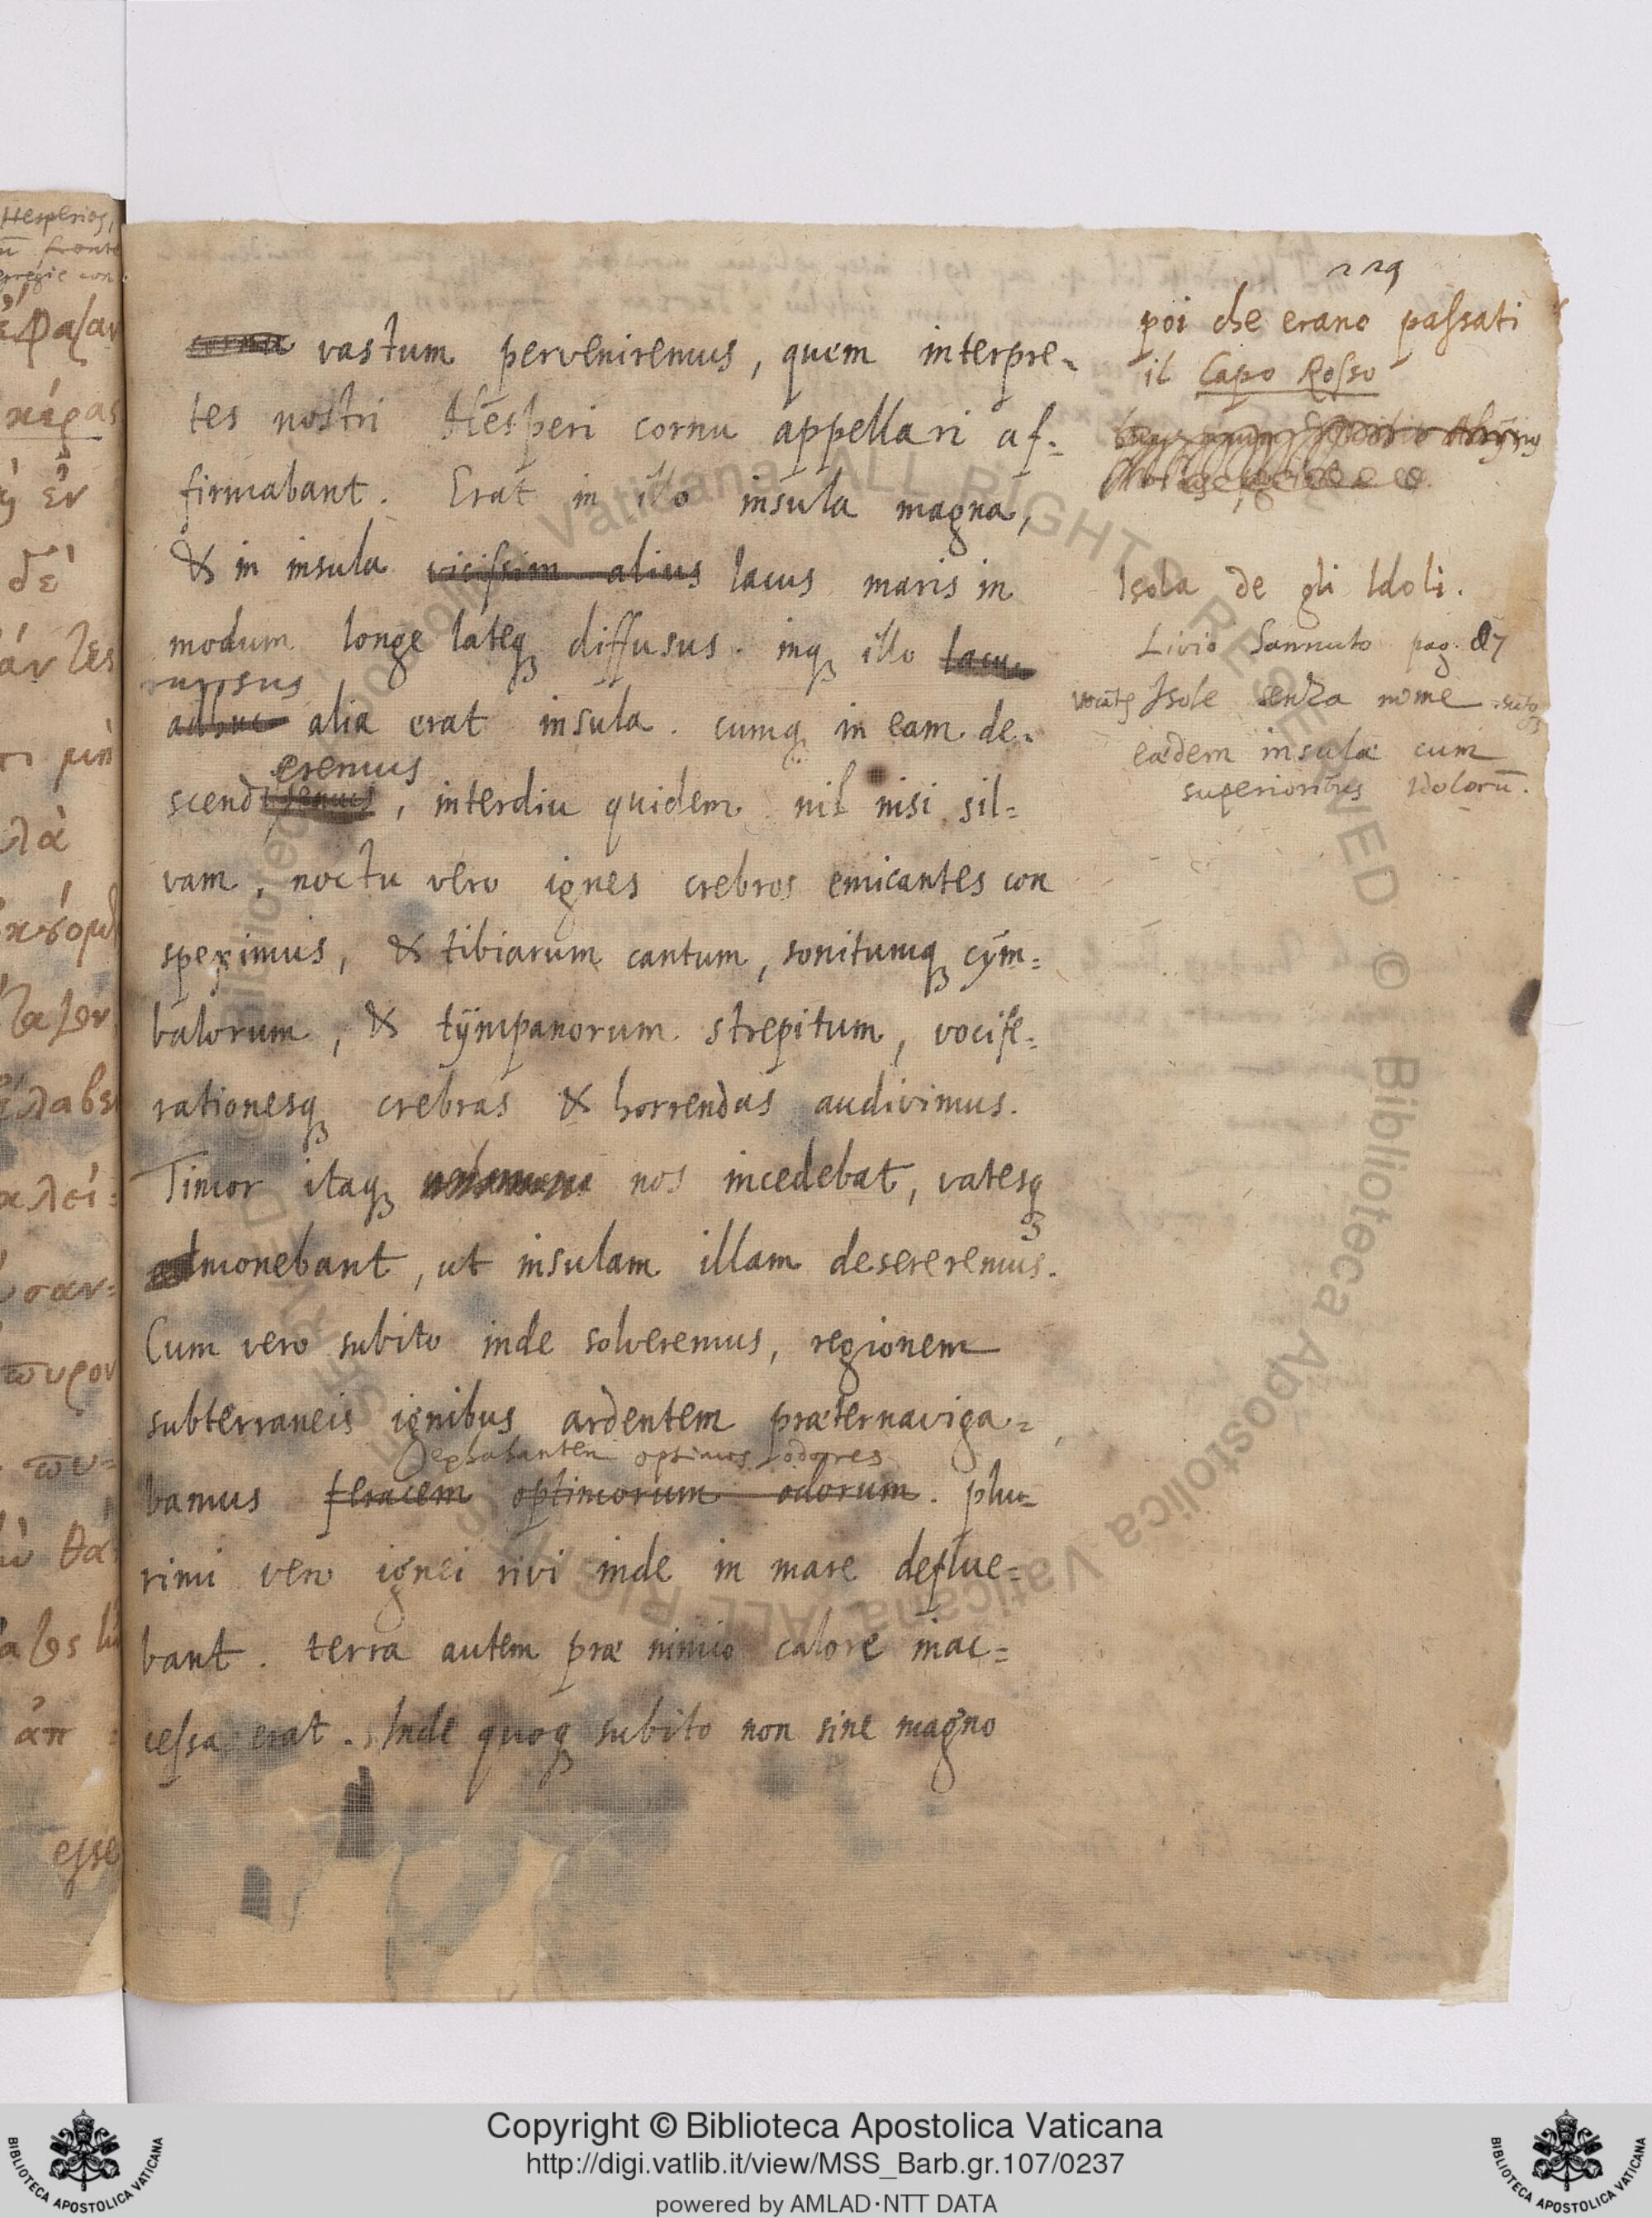 229
cornu vastum perveniremus, quem interpre-
tes nostri Hesperi cornu appellari af-
firmabant. Erat in illo insula magna,
& in insula vicissim alius lacus maris in
modum longe lateq; diffusus. inq; illo lacu
rursus
adhuc alia erat insula. cumq; in eam de-
eremus
scend , interdiu quidem nil nisi sil-
vam, noctu vero ignes crebros emicantes con
speximus, & tibiarum cantum, sonitumq; cÿm-
balorum, & tÿmpanorum strepitum, vocife-
rationesq; crebras & horrendas audivimus.
Timor itaq; nos incedebat, vatesq;
admonebant, ut insulam illam desereremus.
Cum vero subito inde solveremus, regionem
subterraneis ignibus ardentem præternaviga-
exhalantem optimos odores
bamus feracem optimorum odorum. plu-
rimi vero ignei rivi inde in mare deflue-
bant. terra autem præ nimio calore inac-
cessa erat. Inde quoq; subito non sine magno
poi che erano passati
il Capo Rosso
Isola de gli Idoli.
Livio Sannuto pag. 87
Isole senza nome
eædem insulæ cum
superioribus Idolorū.
Hesperios,
ū fronte
κέρας
ἐν
δὲ
esse
Biblioteca Apostolica Vaticana ALL RIGHTS RESERVED ©
Copyright © Biblioteca Apostolica Vaticana
http://digi.vatlib.it/view/MSS_Barb.gr.107/0237
powered by AMLAD·NTT DATA
BIBLIOTECA APOSTOLICA VATICANA
BIBLIOTECA APOSTOLICA VATICANA